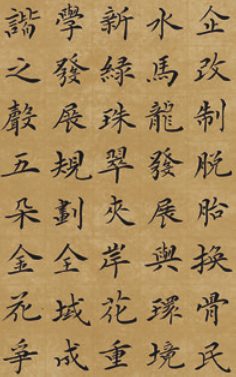 企改制脱胎換骨民
水馬龍發展與環境
新綠珠翠夾岸花重
學發展規劃全域成
諧之聲五朵金花爭